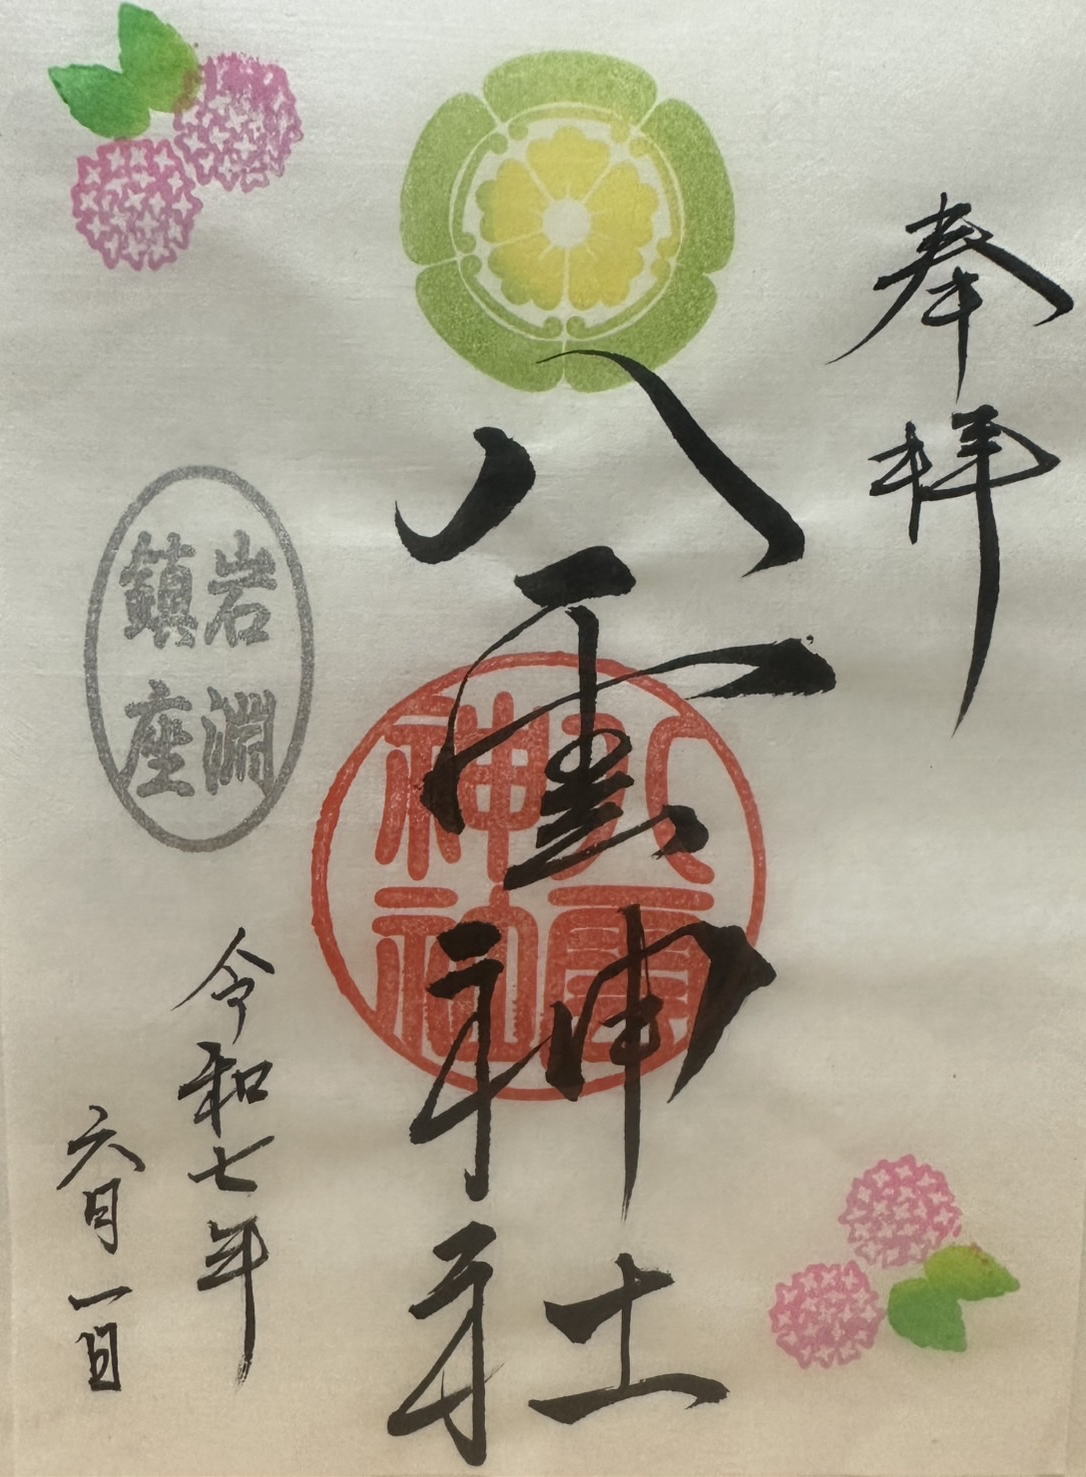 奉拝
八雲神社
八雲
神社
岩淵
鎮座
令和七年
六月一日